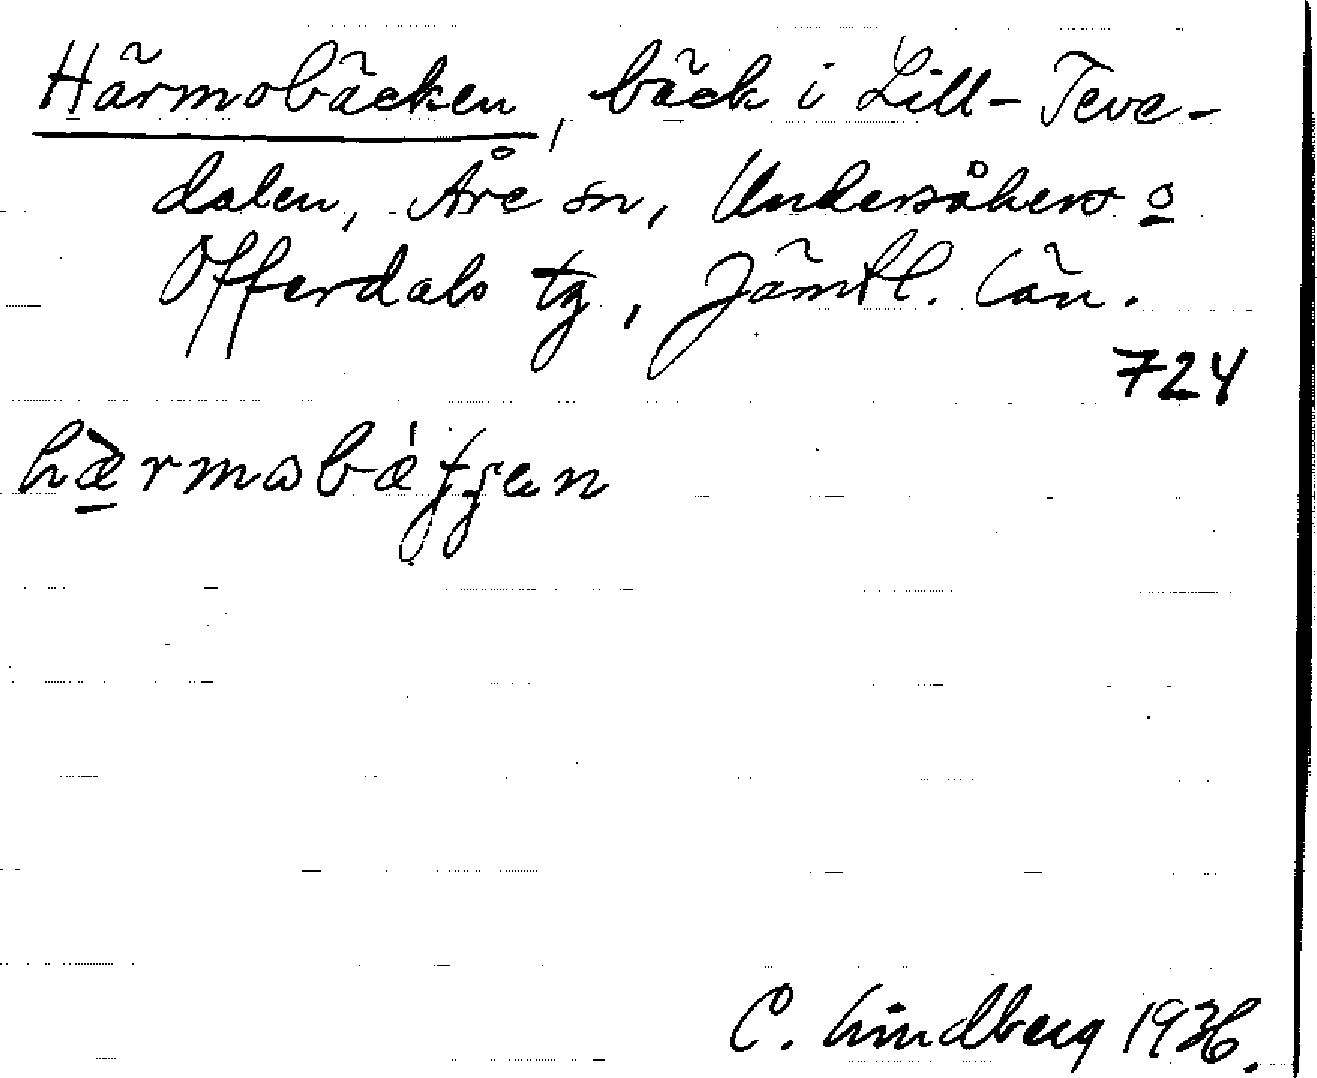 Härmobäcken, bäck i Lill-Teve-
dalen, Åre sn, Undersåkers o
Offerdals tg, Jämtl. län.
724
hæ̀rmabǽʈʂen
C. Lindberg 1936.